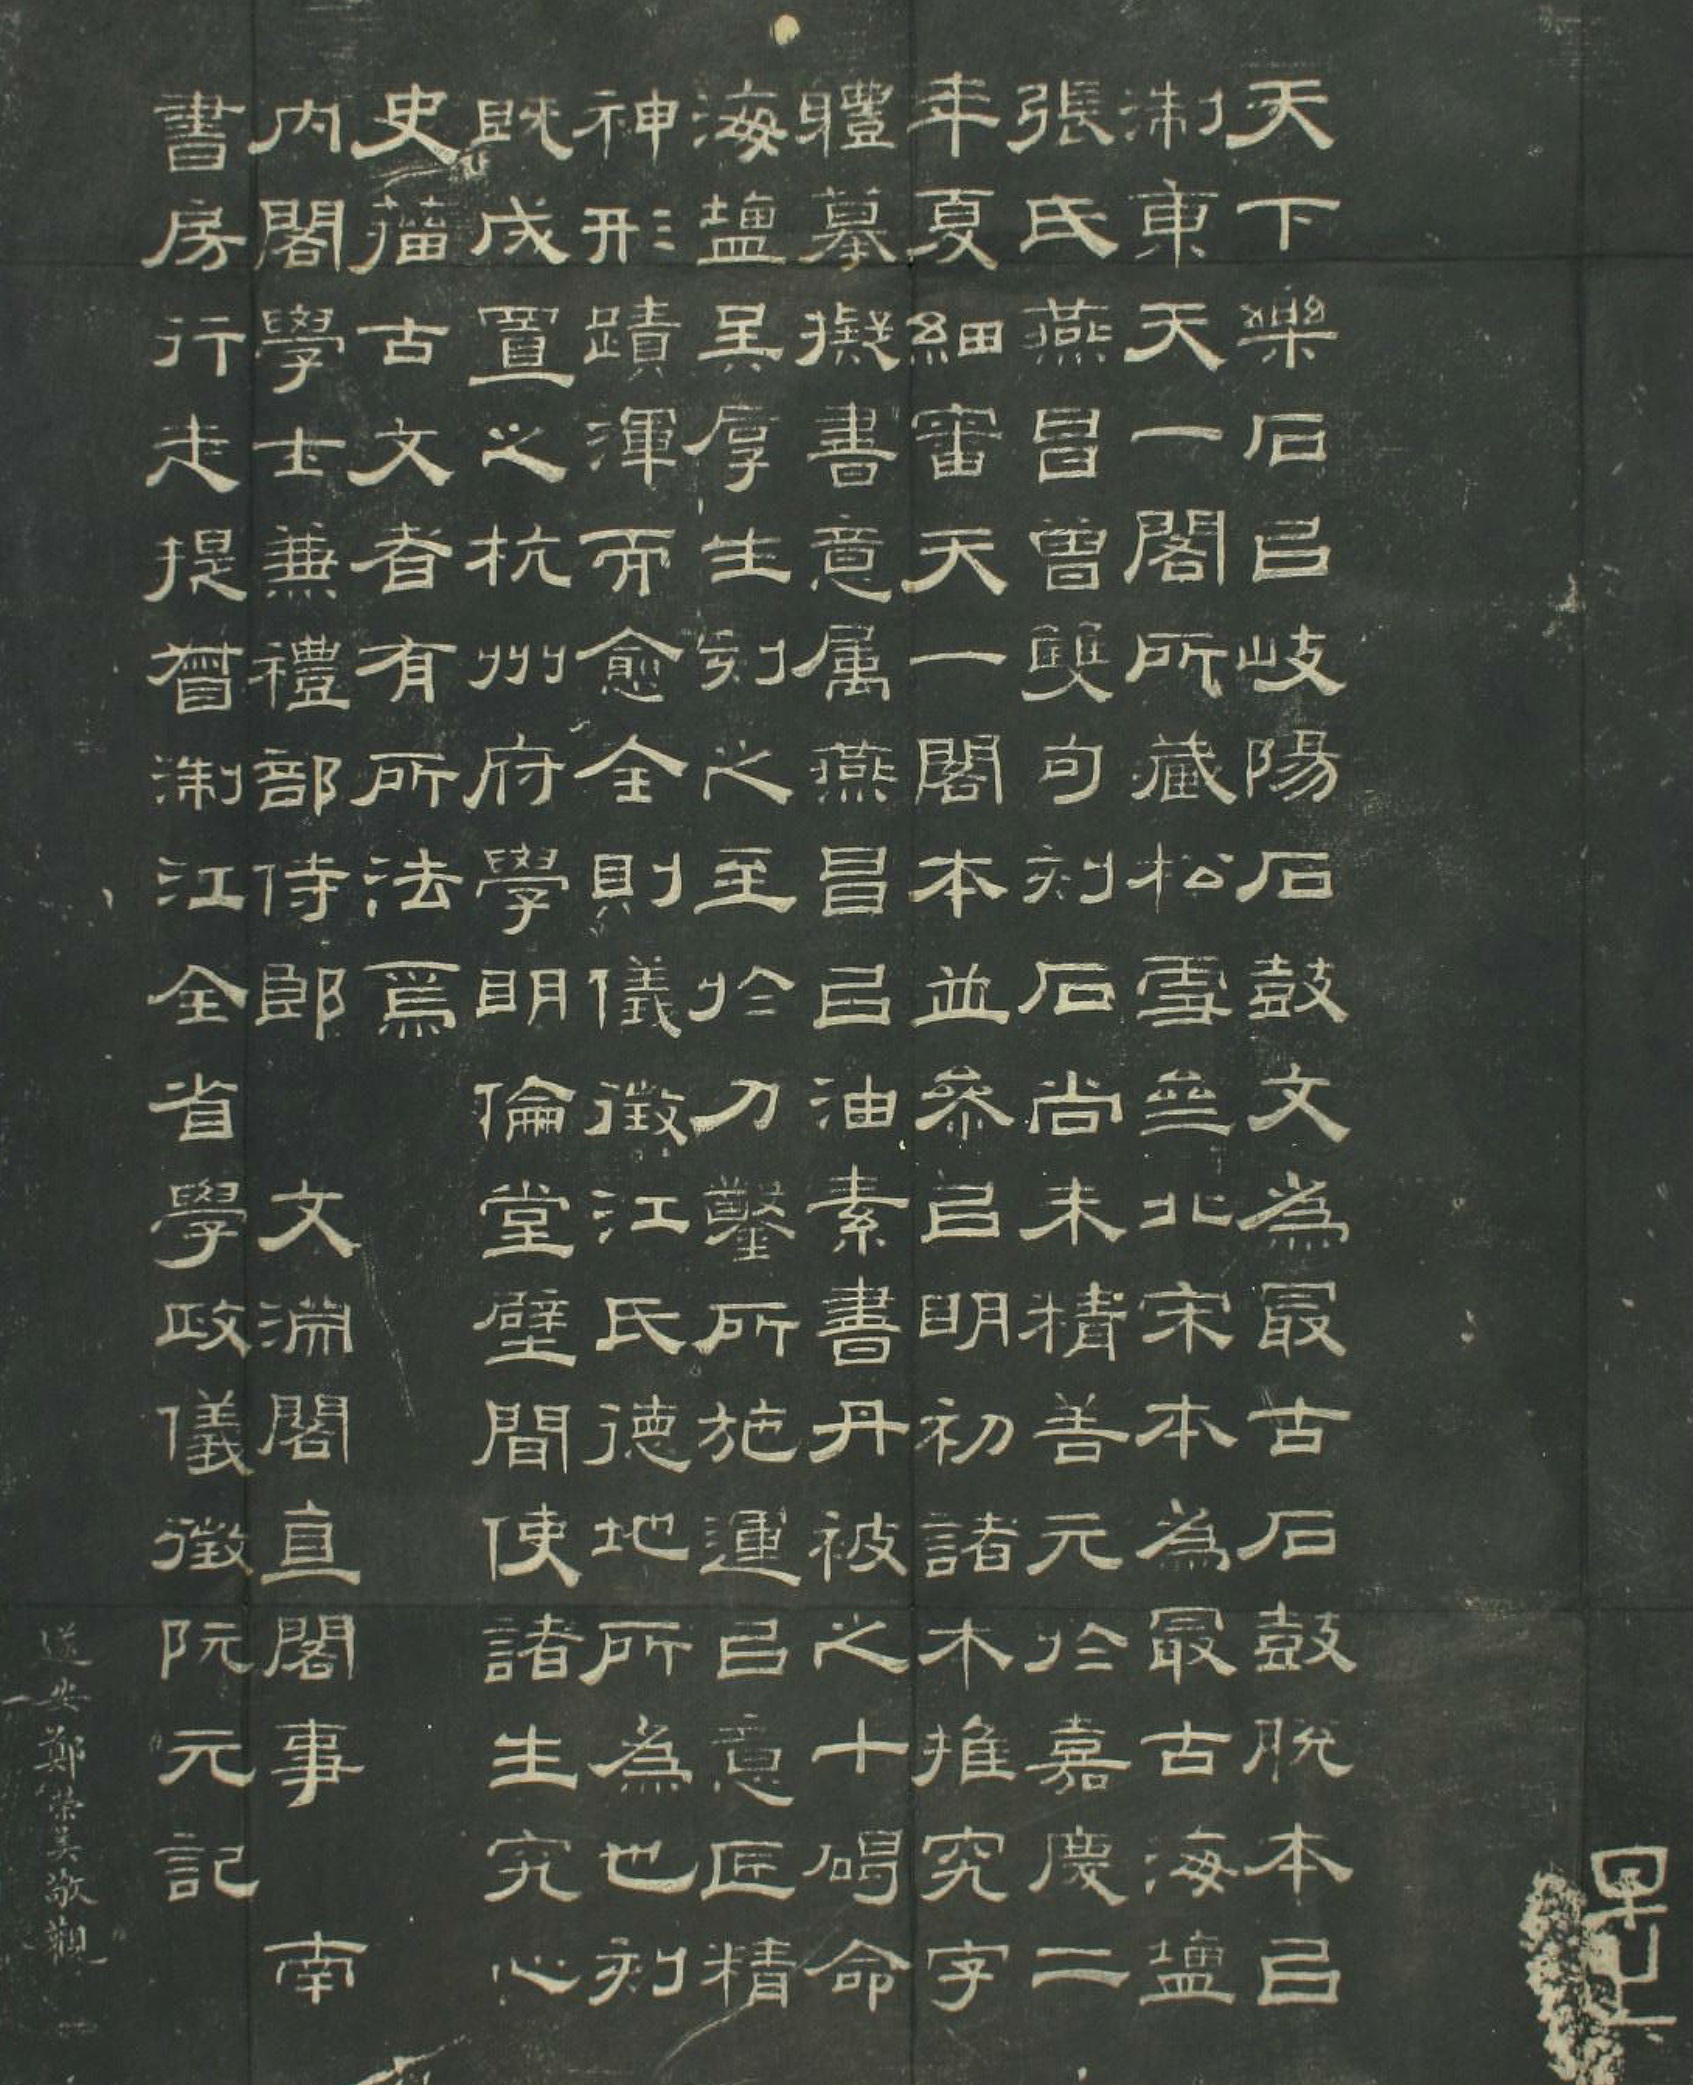 天下樂石㠯岐陽石鼓文為冣古石鼓脫本㠯
淛東天一閣所藏松雪齋北宋本為冣古海鹽
張氏燕昌曾雙句刻石尚未精善元於嘉慶二
年夏細審天一閣本並參㠯明初諸木推究字
體摹擬書意属燕昌㠯油素書丹被之十碣命
海鹽吳厚生刻之至於刀鑿所施運㠯意匠精
神形蹟渾而愈全則儀徵江氏德地所為也刻
既成置之杭州府學明倫堂壁間使諸生究心
史籀古文者有所法焉
內閣學士兼禮部侍郎 文淵閣直閣事 南
書房行走提督淛江全省學政儀徵阮元記
鄭榮美敬觀